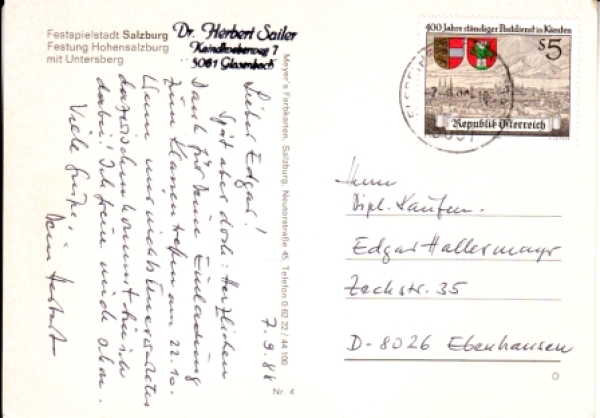 Festspielstadt Salzburg
Festung Hohensalzburg
mit Untersberg
Dr. Herbert Sailer
5061 Glasenbach
7.9.88
Lieber Edgar!
Spät aber doch: Herzlichen
Dank für Deine Einladung
zum Klassentreffen am 22.10.
Wenn mir nichts Unerwartetes
dazwischen kommt bin ich
dabei! Ich freue mich schon.
Viele Grüße,
Dein Herbert
Meyer's Farbkarten, Salzburg, Neutorstraße 45, Telefon 0 62 22 / 44 100
Nr. 4
400 Jahre ständiger Postdienst in Kärnten
S 5
Republik Österreich
Herrn
Dipl. Kaufm.
Edgar Hallermayr
Zechstr. 35
D-8026 Ebenhausen